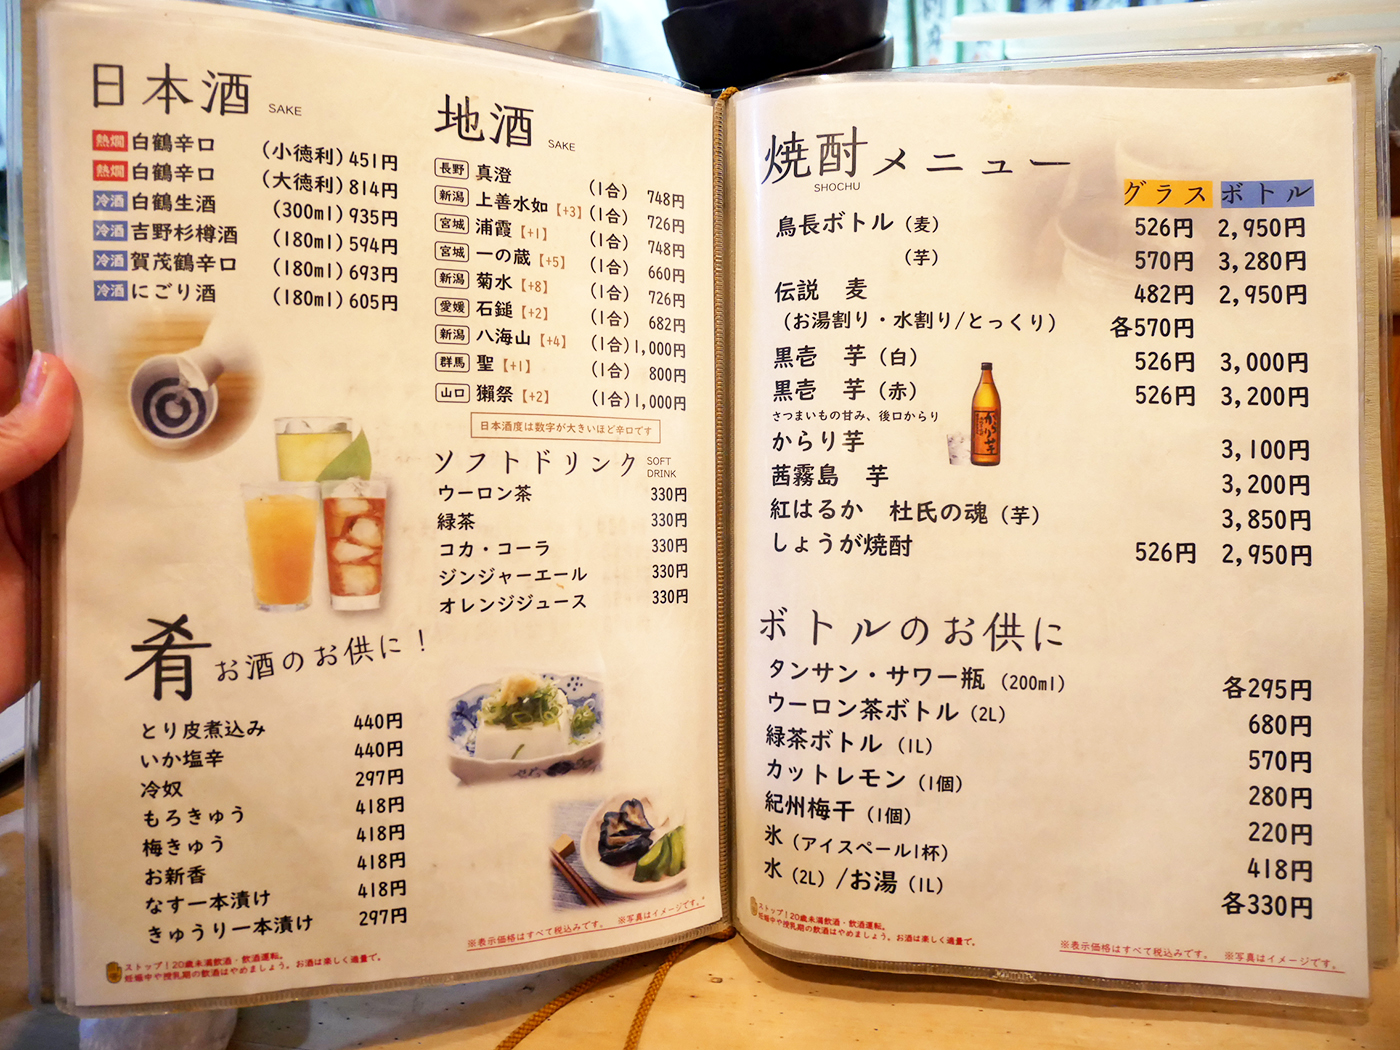 日本酒 SAKE
熱燗 白鶴辛口 (小徳利) 451円
熱燗 白鶴辛口 (大徳利) 814円
冷酒 白鶴生酒 (300ml) 935円
冷酒 吉野杉樽酒 (180ml) 594円
冷酒 賀茂鶴辛口 (180ml) 693円
冷酒 にごり酒 (180ml) 605円
地酒 SAKE
長野 真澄 (1合) 748円
新潟 上善水如【+3】 (1合) 726円
宮城 浦霞【+1】 (1合) 748円
宮城 一の蔵【+5】 (1合) 660円
新潟 菊水【+8】 (1合) 726円
愛媛 石鎚【+2】 (1合) 682円
新潟 八海山【+4】 (1合) 1,000円
群馬 聖【+1】 (1合) 800円
山口 獺祭【+2】 (1合) 1,000円
日本酒度は数字が大きいほど辛口です
ソフトドリンク SOFT DRINK
ウーロン茶 330円
緑茶 330円
コカ・コーラ 330円
ジンジャーエール 330円
オレンジジュース 330円
肴 お酒のお供に！
とり皮煮込み 440円
いか塩辛 440円
冷奴 297円
もろきゅう 418円
梅きゅう 418円
お新香 418円
なす一本漬け 418円
きゅうり一本漬け 297円
※表示価格はすべて税込みです。 ※写真はイメージです。
ストップ！20歳未満飲酒・飲酒運転。
妊娠中や授乳期の飲酒はやめましょう。お酒は楽しく適量で。
焼酎メニュー
SHOCHU
グラス ボトル
鳥長ボトル (麦) 526円 2,950円
(芋) 570円 3,280円
伝説 麦 482円 2,950円
(お湯割り・水割り/とっくり) 各570円
黒壱 芋 (白) 526円 3,000円
黒壱 芋 (赤) 526円 3,200円
さつまいもの甘み、後口からり
からり芋 3,100円
茜霧島 芋 3,200円
紅はるか 杜氏の魂 (芋) 3,850円
しょうが焼酎 526円 2,950円
からり芋
ボトルのお供に
タンサン・サワー瓶 (200ml) 各295円
ウーロン茶ボトル (2L) 680円
緑茶ボトル (1L) 570円
カットレモン (1個) 280円
紀州梅干 (1個) 220円
氷 (アイスペール1杯) 418円
水 (2L) /お湯 (1L) 各330円
ストップ！20歳未満飲酒・飲酒運転。
妊娠中や授乳期の飲酒はやめましょう。お酒は楽しく適量で。
※表示価格はすべて税込みです。 ※写真はイメージです。